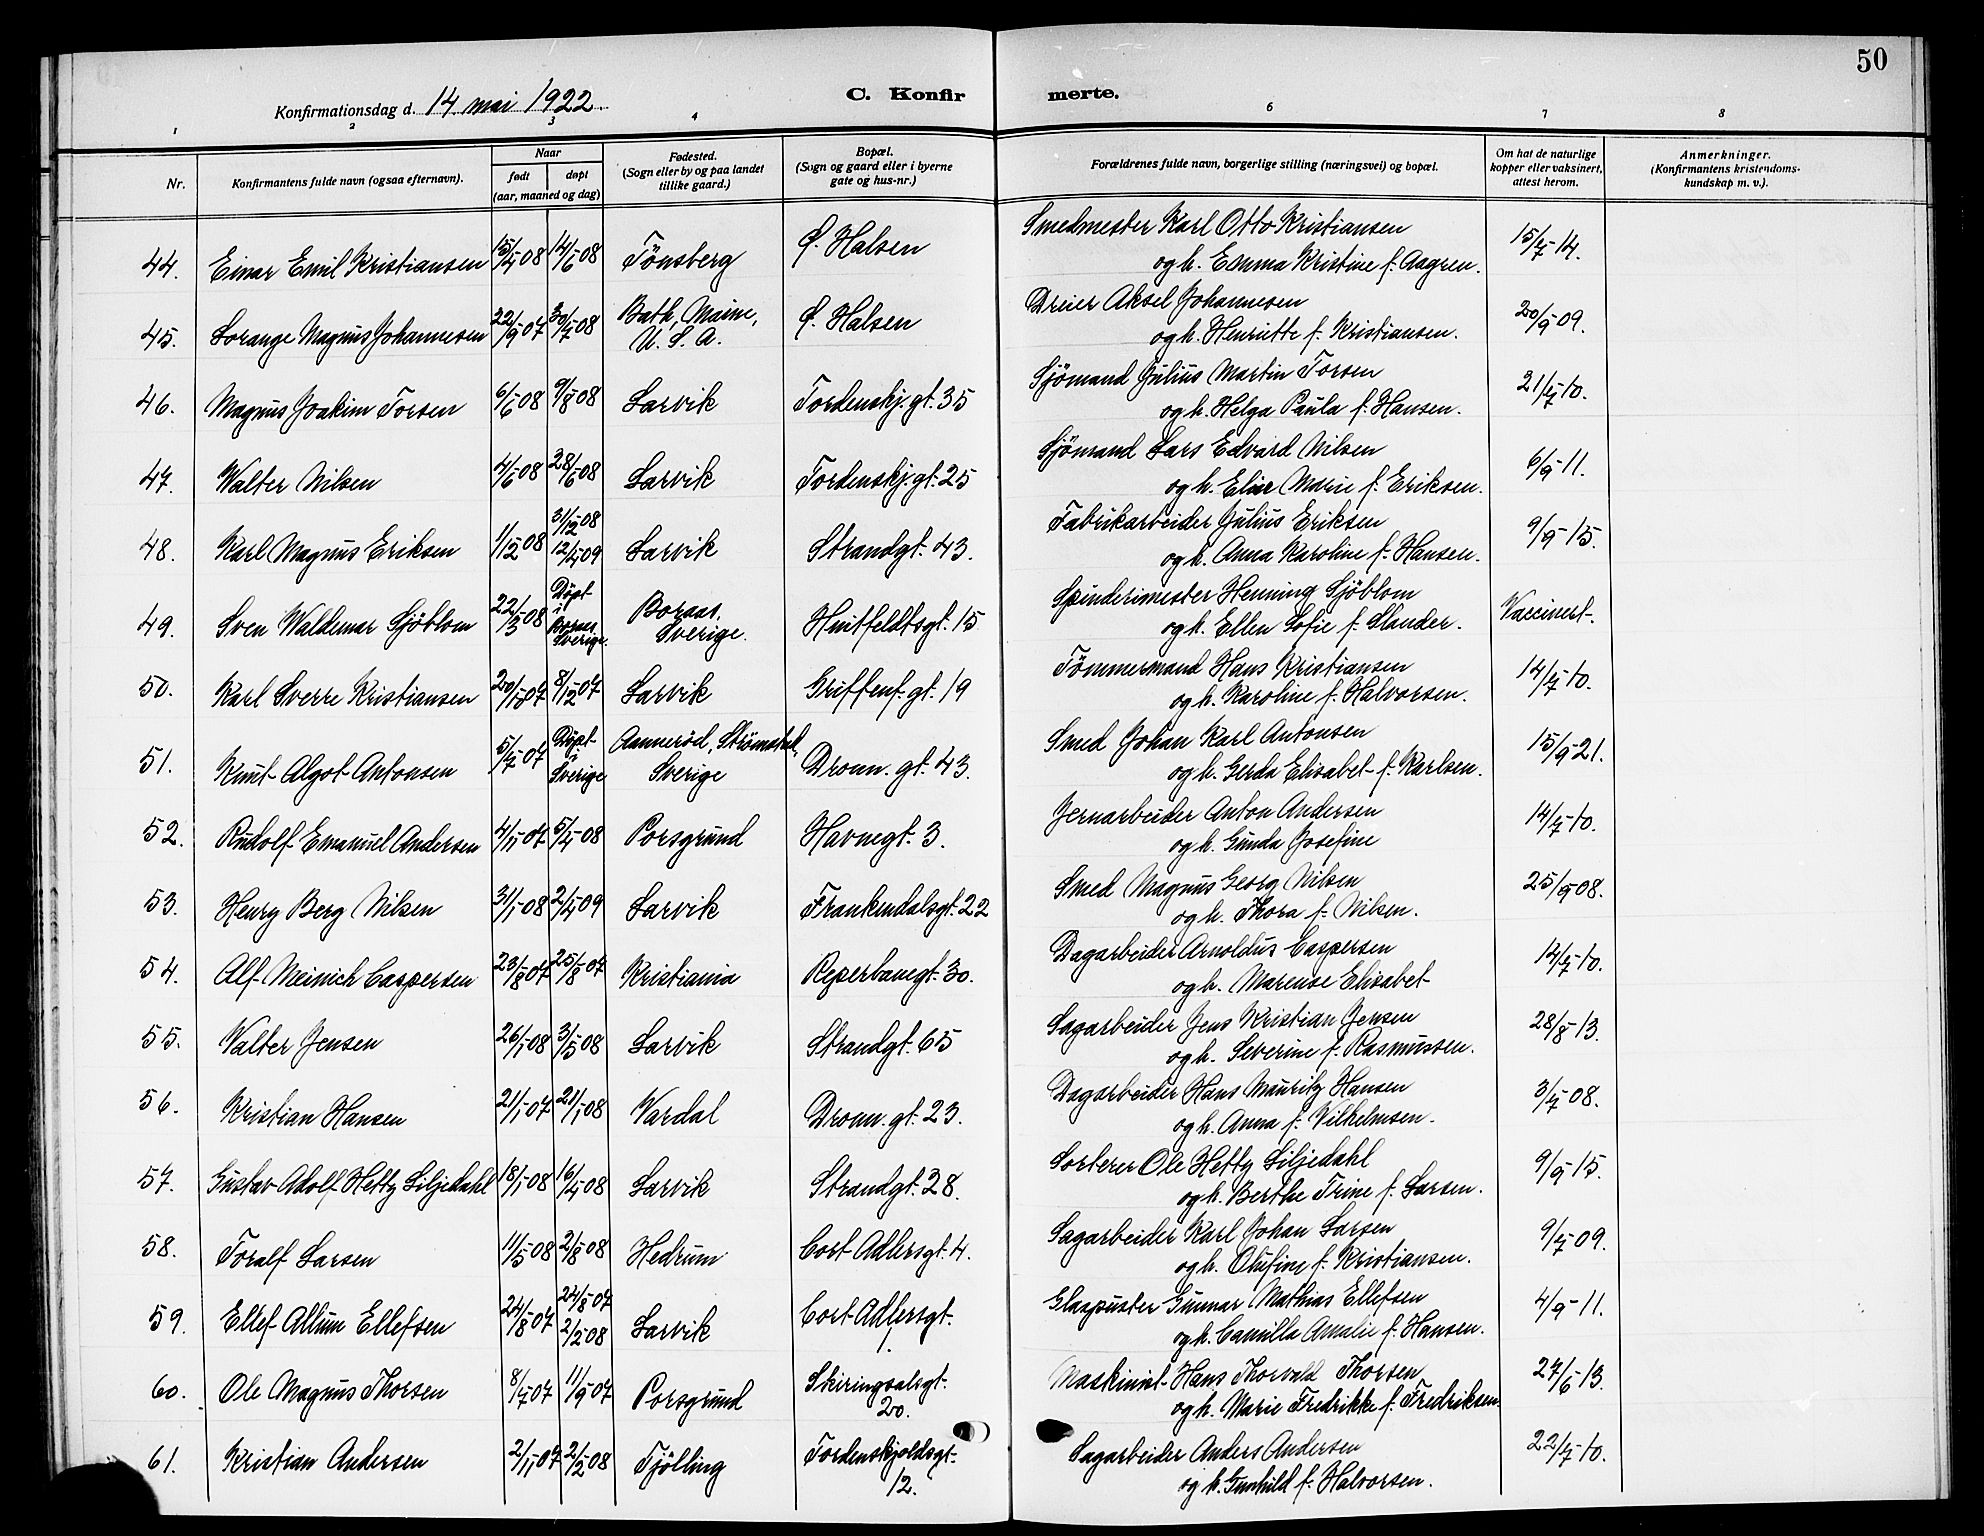 50
Konfirmationsdag d. 14. mai 1922
C. Konfirmerte.
1 2 3 4 6 7 8
Nr.
Konfirmantens fulde navn (ogsaa efternavn).
Naar
født døpt
(aar, maaned og dag)
Fødested.
(Sogn eller by og paa landet
tillike gaard.)
Bopæl.
(Sogn og gaard eller i byerne
gate og hus-nr.)
Forældrenes fulde navn, borgerlige stilling (næringsvei) og bopæl.
Om hat de naturlige
kopper eller vaksinert,
attest herom.
Anmerkninger.
(Konfirmantens kristendoms-
kundskap m. v.).
44. Einar Emil Kristiansen 15/4-08 14/6-08 Tönsberg Ø. Halsen Smedmester Karl Otto Kristiansen 15/7-14.
og h. Emma Kristine f. Aagren.
45. Lorange Magnus Johannesen 22/9-07 30/7-08 Bath, Maine, Ø. Halsen Dreier Aksel Johannesen 20/9-09.
U. S. A. og h. Henriette f. Kristiansen.
46. Magnus Joakim Torsen 6/6-08 9/8-08 Larvik Tordenskj. gt. 35 Sjömand Julius Martin Torsen 21/7-10.
og h. Helga Paula f. Hansen.
47. Walter Nilsen 4/6-08 28/6-08 Larvik Tordenskj. gt. 25 Sjömand Lars Edvard Nilsen 6/9-11.
og h. Elise Marie f. Eriksen.
48. Karl Magnus Eriksen 1/12-08 31/12-08 Larvik Strandgt. 43. Fabrikarbeider Julius Eriksen 9/9-15.
12/4-09 og h. Anna Karoline f. Hansen.
49. Sven Waldemar Sjöblom 22/3-08 Döpt i Boraas, Sverige. Boraas, Sverige. Huitfeldtsgt. 15 Spinderimester Henning Sjöblom Vaccinert.
og h. Ellen Sofie f. Slander.
50. Karl Sverre Kristiansen 20/10-07 8/12-07 Larvik Griffenf. gt. 19 Tömmermand Hans Kristiansen 14/7-10.
og h. Karoline f. Halvorsen.
51. Knut Algot Antonsen 5/7-07 Döpt i Sverige Aanneröd, Strömstad, Sverige Dronn. gt. 43. Smed Johan Karl Antonsen 15/9-21.
og h. Gerda Elisabet f. Karlsen.
52. Rudolf Emanuel Andersen 4/11-07 5/4-08 Porsgrund Havnegt. 3. Jernarbeider Anton Andersen 14/7-10.
og h. Gunda Josefine
53. Henry Berg Nilsen 31/1-08 2/4-09 Larvik Frankendalsgt. 22 Smed Magnus Georg Nilsen 25/9-08.
og h. Thora f. Nilsen.
54. Alf Meinich Caspersen 23/8-07 25/8-07 Kristiania Reperbanegt. 30. Dagarbeider Arnoldus Caspersen 14/7-10.
og h. Marense Elisabet
55. Valter Jensen 26/1-08 3/5-08 Larvik Strandgt. 65 Sagarbeider Jens Kristian Jensen 28/8-13.
og h. Severine f. Rasmussen.
56. Kristian Hansen 21/1-07 21/1-08 Vardal Dronn. gt. 23. Dagarbeider Hans Mauritz Hansen 3/7-08.
og h. Anna f. Vilhelmsen.
57. Gustav Adolf Hetty Liljedahl 18/1-08 16/4-08 Larvik Strandgt. 28. Sorterer Ole Hetty Liljedahl 9/9-15.
og h. Berthe Trine f. Larsen.
58. Toralf Larsen 11/5-08 2/8-08 Hedrum Cort Adlersgt. 4. Sagarbeider Karl Johan Larsen 9/7-09.
og h. Olufine f. Kristiansen.
59. Ellef Allum Ellefsen 24/8-07 24/8-07 Larvik Cort Adlersgt. Glaspuster Gunnar Mathias Ellefsen 4/9-11.
2/2-08 1. og h. Camilla Amalie f. Hansen.
60. Ole Magnus Thorsen 8/7-07 11/9-07 Porsgrund Skiringsalsgt. Maskinist Hans Thorvald Thorsen 27/6-13.
20. og h. Marie Fredrikke f. Fredriksen.
61. Kristian Andersen 2/11-07 2/2-08 Tjölling Tordenskjoldsgt. Sagarbeider Anders Andersen 22/7-10.
12. og h. Gunhild f. Halvorsen.